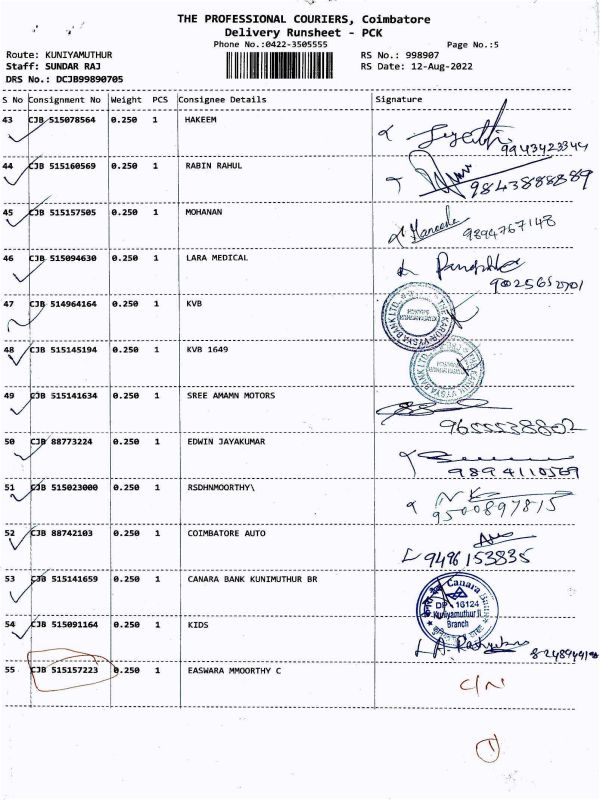 THE PROFESSIONAL COURIERS, Coimbatore
Delivery Runsheet - PCK
Phone No.:0422-3505555
Page No.:5
Route: KUNIYAMUTHUR
RS No.: 998907
Staff: SUNDAR RAJ
RS Date: 12-Aug-2022
DRS No.: DCJB99890705
S No Consignment No Weight PCS Consignee Details Signature
43 CJB 515078564 0.250 1 HAKEEM
9943423344
44 CJB 515160569 0.250 1 RABIN RAHUL
9843888889
45 CJB 515157505 0.250 1 MOHANAN
9894767148
46 CJB 515094630 0.250 1 LARA MEDICAL
47 CJB 514964164 0.250 1 KVB
THE KARUR VYSYA BANK LTD.
48 CJB 515145194 0.250 1 KVB 1649
THE KARUR VYSYA BANK LTD.
49 CJB 515141634 0.250 1 SREE AMAMN MOTORS
9655538802
50 CJB 88773224 0.250 1 EDWIN JAYAKUMAR
9894110569
51 CJB 515023000 0.250 1 RSDHNMOORTHY\
9500897815
52 CJB 88742103 0.250 1 COIMBATORE AUTO
9496153835
53 CJB 515141659 0.250 1 CANARA BANK KUNIMUTHUR BR
Canara Bank
DP 16124
Kuniyamuthur II
Branch
54 CJB 515091164 0.250 1 KIDS
55 CJB 515157223 0.250 1 EASWARA MMOORTHY C
C/N